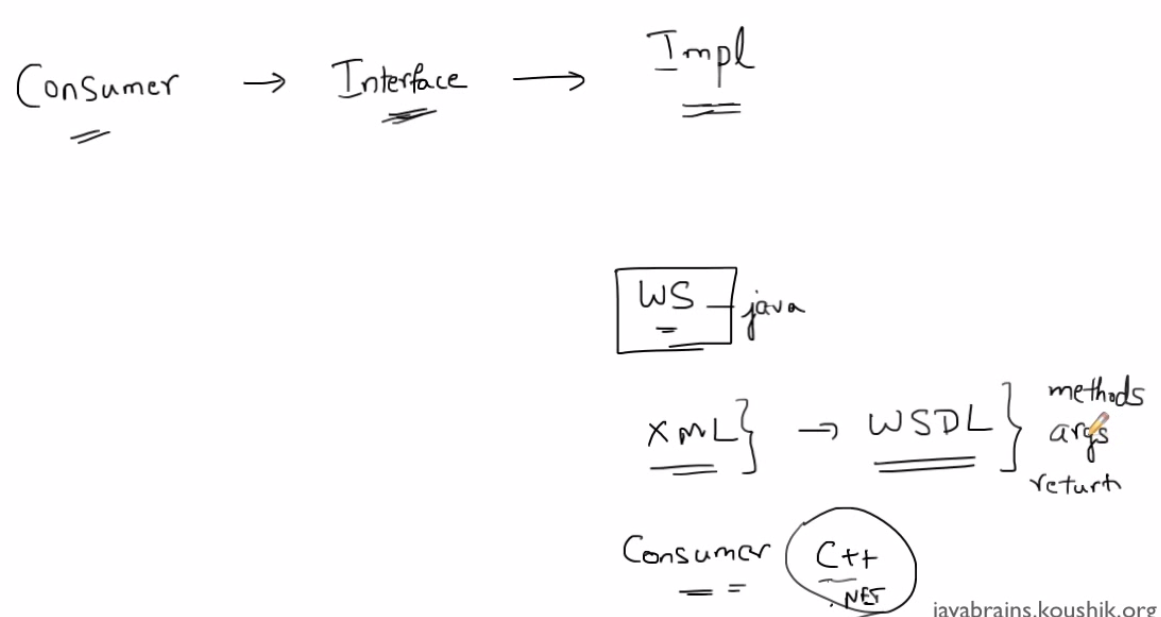 Consumer → Interface → Impl
WS - java
XML } → WSDL } methods
args
return
Consumer C++
.NET
javabrains.koushik.org